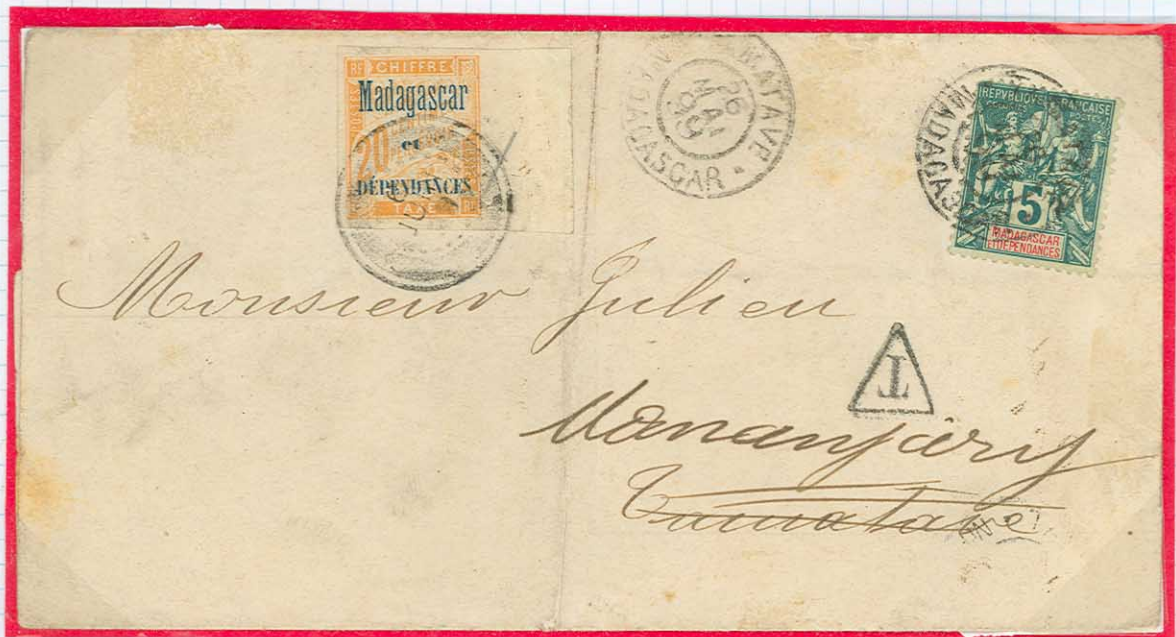 RF CHIFFRE
Madagascar
20
et
DÉPENDANCES
TAXE RF
TAMATAVE
26
MAI
99
MADAGASCAR
REPVBLIQVE FRANÇAISE
POSTES
5
MADAGASCAR
ET DÉPENDANCES
Monsieur Julien
T
Mananjary
Tamatave